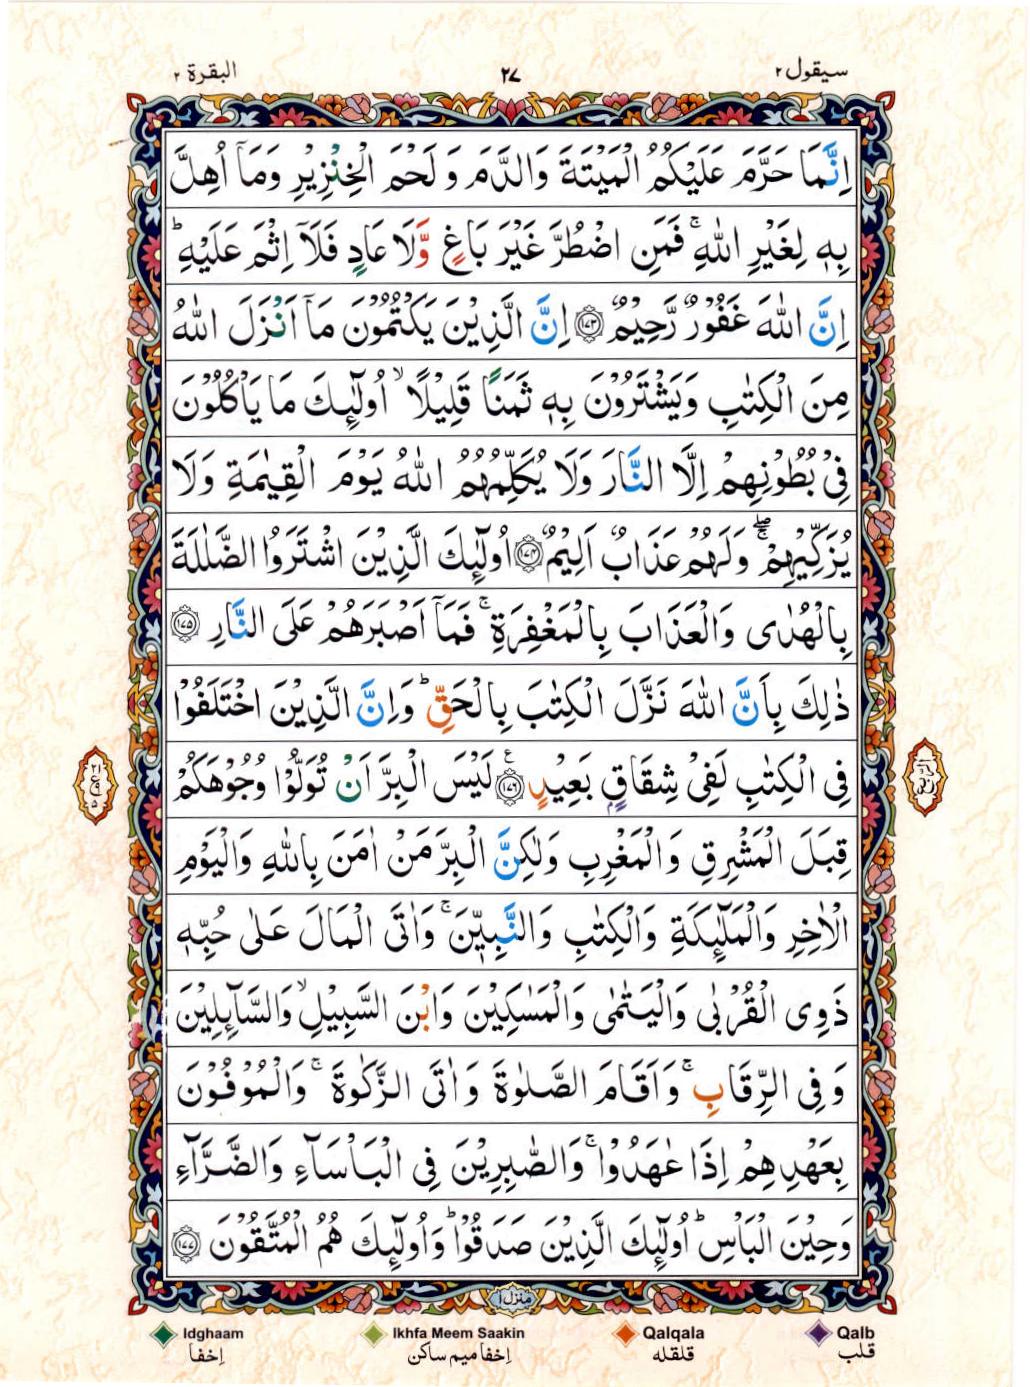 سيقول ٢ ٢٧ البقرة ٢
اِنَّمَا حَرَّمَ عَلَيْكُمُ الْمَيْتَةَ وَالدَّمَ وَ لَحْمَ الْخِنْزِيْرِ وَمَاۤ اُهِلَّ
بِهٖ لِغَيْرِ اللّٰهِ ۚ فَمَنِ اضْطُرَّ غَيْرَ بَاغٍ وَّلَا عَادٍ فَلَاۤ اِثْمَ عَلَيْهِ ؕ
اِنَّ اللّٰهَ غَفُوْرٌ رَّحِيْمٌ ﴿۱۷۳﴾ اِنَّ الَّذِيْنَ يَكْتُمُوْنَ مَاۤ اَنْزَلَ اللّٰهُ
مِنَ الْكِتٰبِ وَيَشْتَرُوْنَ بِهٖ ثَمَنًا قَلِيْلًا ۙ اُولٰٓئِكَ مَا يَاْكُلُوْنَ
فِيْ بُطُوْنِهِمْ اِلَّا النَّارَ وَلَا يُكَلِّمُهُمُ اللّٰهُ يَوْمَ الْقِيٰمَةِ وَلَا
يُزَكِّيْهِمْ ۖۚ وَلَهُمْ عَذَابٌ اَلِيْمٌ ﴿۱۷۴﴾ اُولٰٓئِكَ الَّذِيْنَ اشْتَرَوُا الضَّلٰلَةَ
بِالْهُدٰى وَالْعَذَابَ بِالْمَغْفِرَةِ ۚ فَمَاۤ اَصْبَرَهُمْ عَلَى النَّارِ ﴿۱۷۵﴾
ذٰلِكَ بِاَنَّ اللّٰهَ نَزَّلَ الْكِتٰبَ بِالْحَقِّ ؕ وَاِنَّ الَّذِيْنَ اخْتَلَفُوْا
فِى الْكِتٰبِ لَفِيْ شِقَاقٍۭ بَعِيْدٍ ﴿۱۷۶﴾ ع لَيْسَ الْبِرَّ اَنْ تُوَلُّوْا وُجُوْهَكُمْ
قِبَلَ الْمَشْرِقِ وَالْمَغْرِبِ وَلٰكِنَّ الْبِرَّ مَنْ اٰمَنَ بِاللّٰهِ وَالْيَوْمِ
الْاٰخِرِ وَالْمَلٰٓئِكَةِ وَالْكِتٰبِ وَالنَّبِيّٖنَ ۚ وَاٰتَى الْمَالَ عَلٰى حُبِّهٖ
ذَوِى الْقُرْبٰى وَالْيَتٰمٰى وَالْمَسٰكِيْنَ وَابْنَ السَّبِيْلِ ۙ وَالسَّآئِلِيْنَ
وَفِى الرِّقَابِ ۚ وَاَقَامَ الصَّلٰوةَ وَاٰتَى الزَّكٰوةَ ۚ وَالْمُوْفُوْنَ
بِعَهْدِهِمْ اِذَا عٰهَدُوْا ۚ وَالصّٰبِرِيْنَ فِى الْبَاْسَآءِ وَالضَّرَّآءِ
وَحِيْنَ الْبَاْسِ ؕ اُولٰٓئِكَ الَّذِيْنَ صَدَقُوْا ؕ وَاُولٰٓئِكَ هُمُ الْمُتَّقُوْنَ ﴿۱۷۷﴾
الربع
منزل ۱
Idghaam Ikhfa Meem Saakin Qalqala Qalb
اِخفا اِخفا میم ساکن قلقله قلب